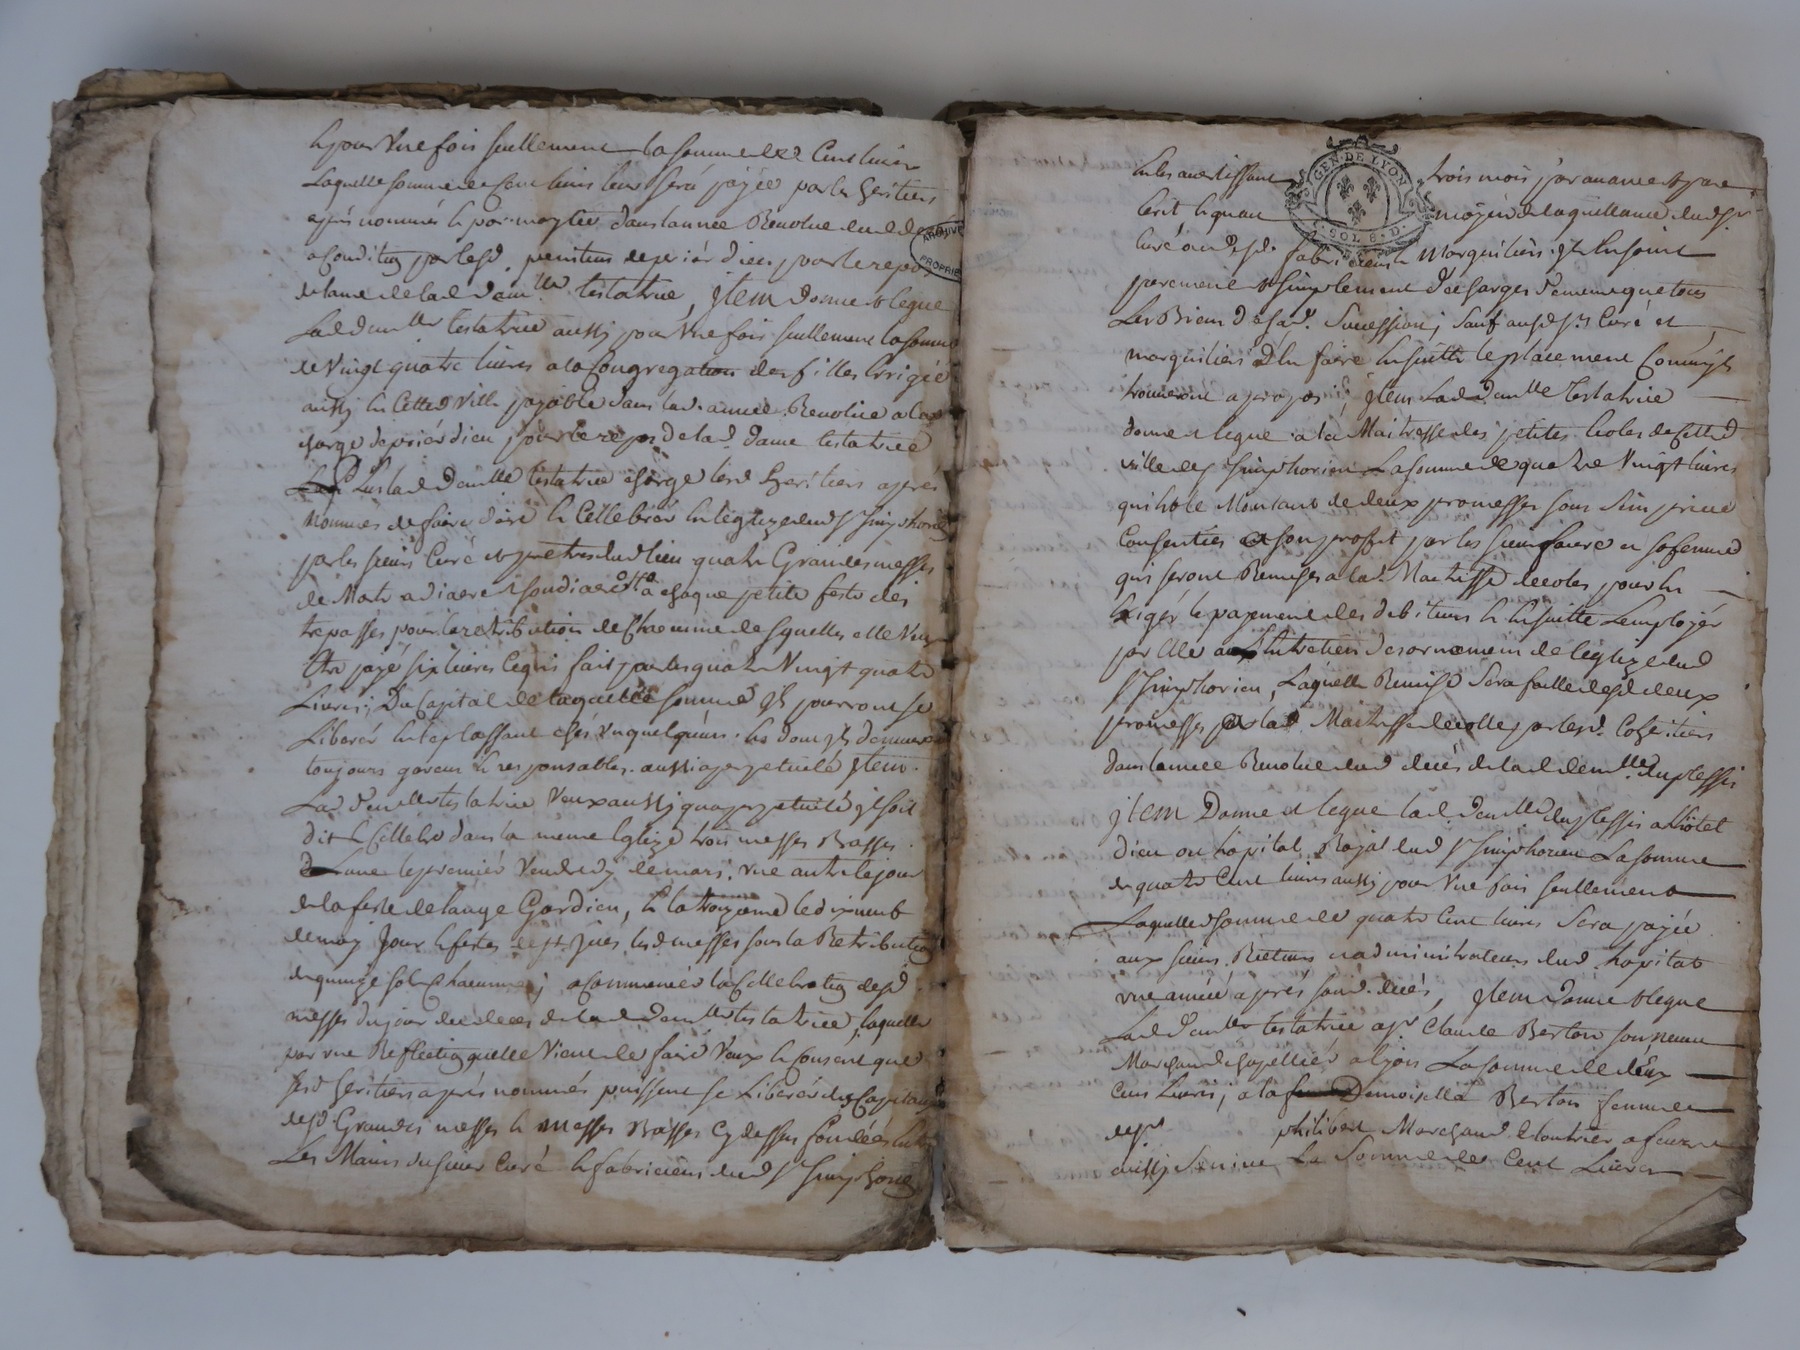 & pour Une fois seullement la somme de Cent livres
Laquelle somme de Cent livres leur sera payée par les heritiers
après nommés & par moytié dans lannée Revolue dud. deces
a Condition par lesd. penitens de prier dieu pour le repos
de lame de lad. dem.lle testatrice, Jtem donne & legue
Lad. dem.lle testatrice aussi pour Une fois seullement la somme
de Vingt quatre livres a la Congregation des filles Erigée
aussi en Cette d. Ville payable dans lad. année Revolue a la
charge de prier dieu pour le repos de lad. dame testatrice
Plus lad. dem.lle testatrice charge sesd. heritiers après
nommés de faire dire & Cellebrer en leglize dud. St. Simphorien
par les sieurs Curé et pretres dud. lieu quatre Grandes messes
de Morts a diacre & soudiacre a chaque petite feste des
trepassés pour la retribution de Chacune desquelles elle Veut
Etre payé six livres Ce qui fait par les quatre Vingt quatre
Livres, Du Capital de laquelle somme Jls pourront se
Liberer en le plassant chés Un quelqu'un dont Jls demeureront
toujours garens & responsables aussi a perpetuité Jtem
Lad. dem.lle testatrice Veux aussi qua perpetuité Jl soit
dit & Cellebré dans la même Eglize trois messes Basses
Lune le premier Vendredy de mars, Une autre le jour
de la feste de lange Gardien, & la troizieme le dix neuf
de may Jour & feste de st. Jves, lesd. messes sous la Retribution
de quinze sols Chacune, a Commencer la Cellebration desd.
messes du jour du deces de lad. dem.lle testatrice, laquelle
par une Reflection quelle Vient de faire Veux & Consent que
sesd. heritiers après nommés puissent se Liberer des Capitaux
desd. Grandes messes & messes Basses Cy dessus fondées
Les Mains du sieur Curé & fabriciens dud. St. Simphorien
ARCHIVES
PROPRIE
GEN. DE LYON
SOL 8. D.
En les avertissant trois mois par avance & par
Ecrit moyen de la quittance dud. sr.
Curé & Marguilliers Jls en soient
purement & simplement dechargés de meme que tous
Les Biens de sad. Succession, Sauf ausd. srs. Curé et
marguilliers den faire en suitte le placement Comme Jls
trouveront a propos, Jtem Lad. dem.lle Testatrice
donne & legue a la Maitresse des petites Ecoles de Cette d.
ville de St. Simphorien La somme de quatre Vingt livres
qui est le Montant de deux promesses sous sein privé
Consenties a son proffit par les et sa femme
qui seront Remises a lad. Maitresse decoles pour en
Exiger le payement des debiteurs & en suitte Lemployer
par Elle a Lentretien des ornemens de leglize dud.
St. Simphorien, Laquelle Remise Sera faitte desd. deux
promesses a lad. Maitresse decolles par lesd. Coheritiers
dans lannée Revolue dud. décès de lad. dem.lle duplessis
Jtem Donne et legue lad. dem.lle duplessis a Lhôtel
dieu ou hôpital Royal dud. St. Simphorien La somme
de quatre Cent livres aussi pour Une fois seullement
Laquelle somme de quatre Cent livres Sera payée
aux sieurs Recteurs & administrateurs dud. hopital
une année après sond. décès, Jtem donne & legue
Lad. dem.lle testatrice a sr. Claude Berton son neveu
Marchand Chapellier a Lyon La somme de deux
Cens Livres, a la Demoiselle Berton femme
de sr. philibert Marchand
aussi La Somme de Cent Livres